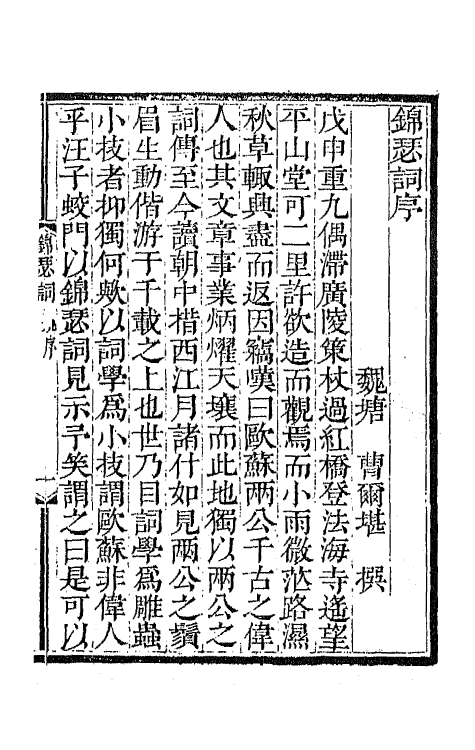 錦瑟詞序
魏塘　曹爾堪　撰
戊申重九偶滯廣陵策杖過紅橋登法海寺遙望
平山堂可二里許欲造而觀焉而小雨微茫路濕
秋草輙興盡而返因竊嘆曰歐蘇兩公千古之偉
人也其文章事業炳燿天壤而此地獨以兩公之
詞傳至今讀朝中措西江月諸什如見兩公之鬚
眉生動偕游于千載之上也世乃目詞學為雕蟲
小技者抑獨何歟以詞學為小技謂歐蘇非偉人
乎汪子蛟門以錦瑟詞見示予笑謂之曰是可以
錦瑟詞　序　一